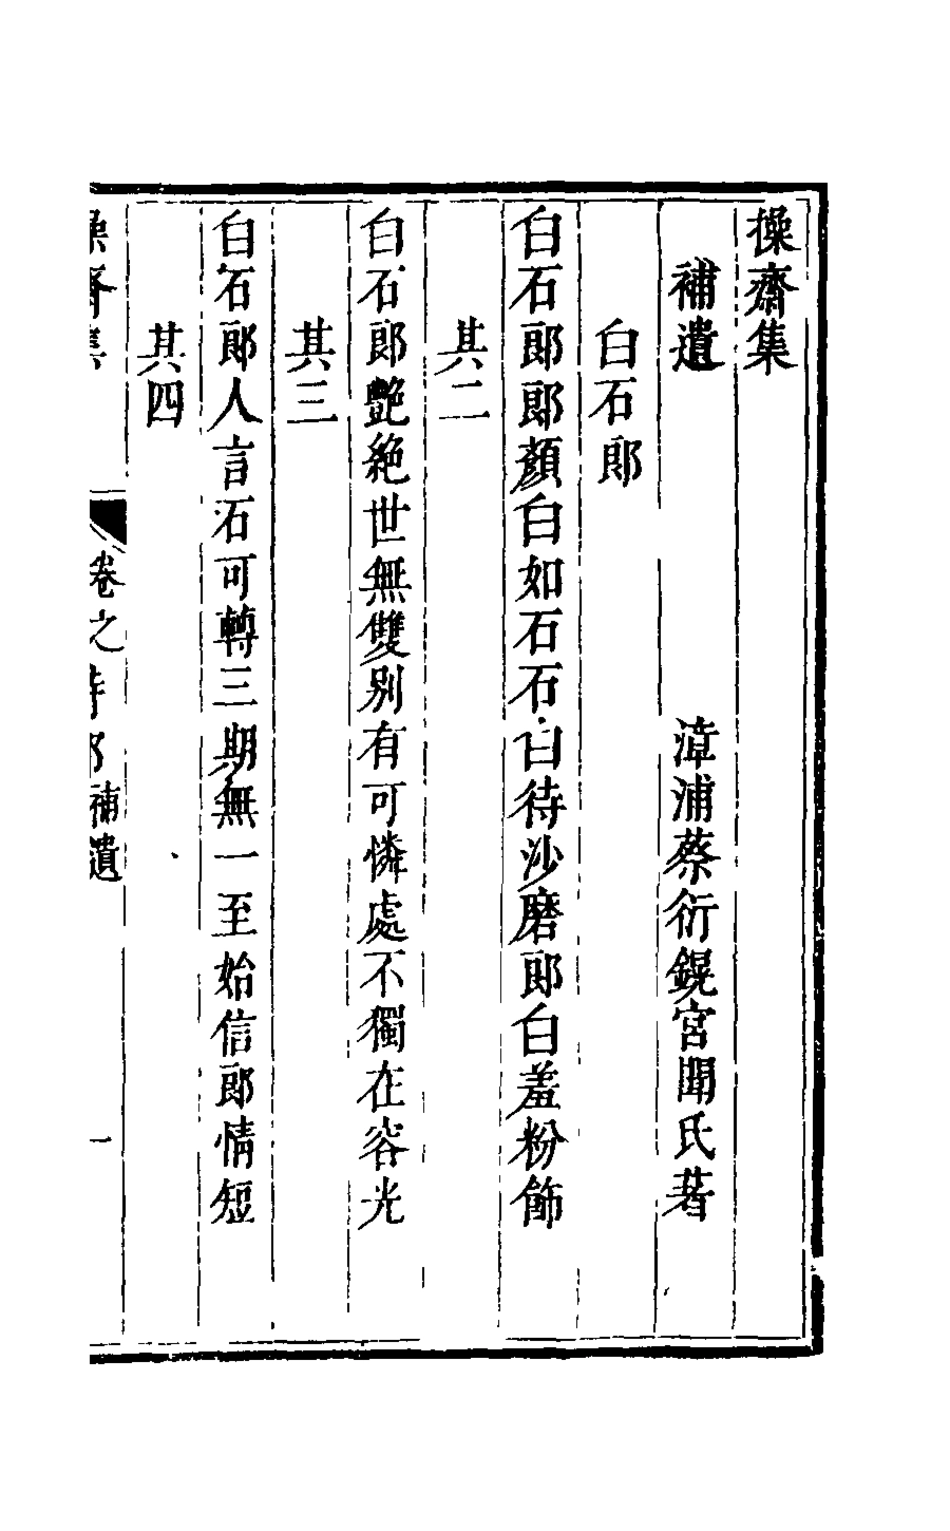 操齋集
補遺
漳浦蔡衍鎤宮聞氏著
白石郎
白石郎郎顏白如石石白待沙磨郎白羞粉飾
其二
白石郎艷絶世無雙别有可憐處不獨在容光
其三
白石郎人言石可轉三期無一至始信郎情短
其四
操齋集
卷之詩部補遺
一